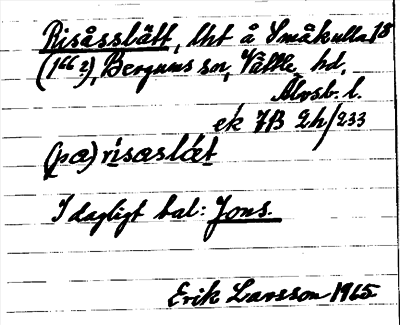 Risåsslätt, lht å Småkulla 1⁵
(1⁶⁶ ²), Bergums sn, Vättle hd,
Älvsb. l.
ek 7B 2h/233
(pæ) risaslæt
I dagligt tal: Jons.
Erik Larsson 1965